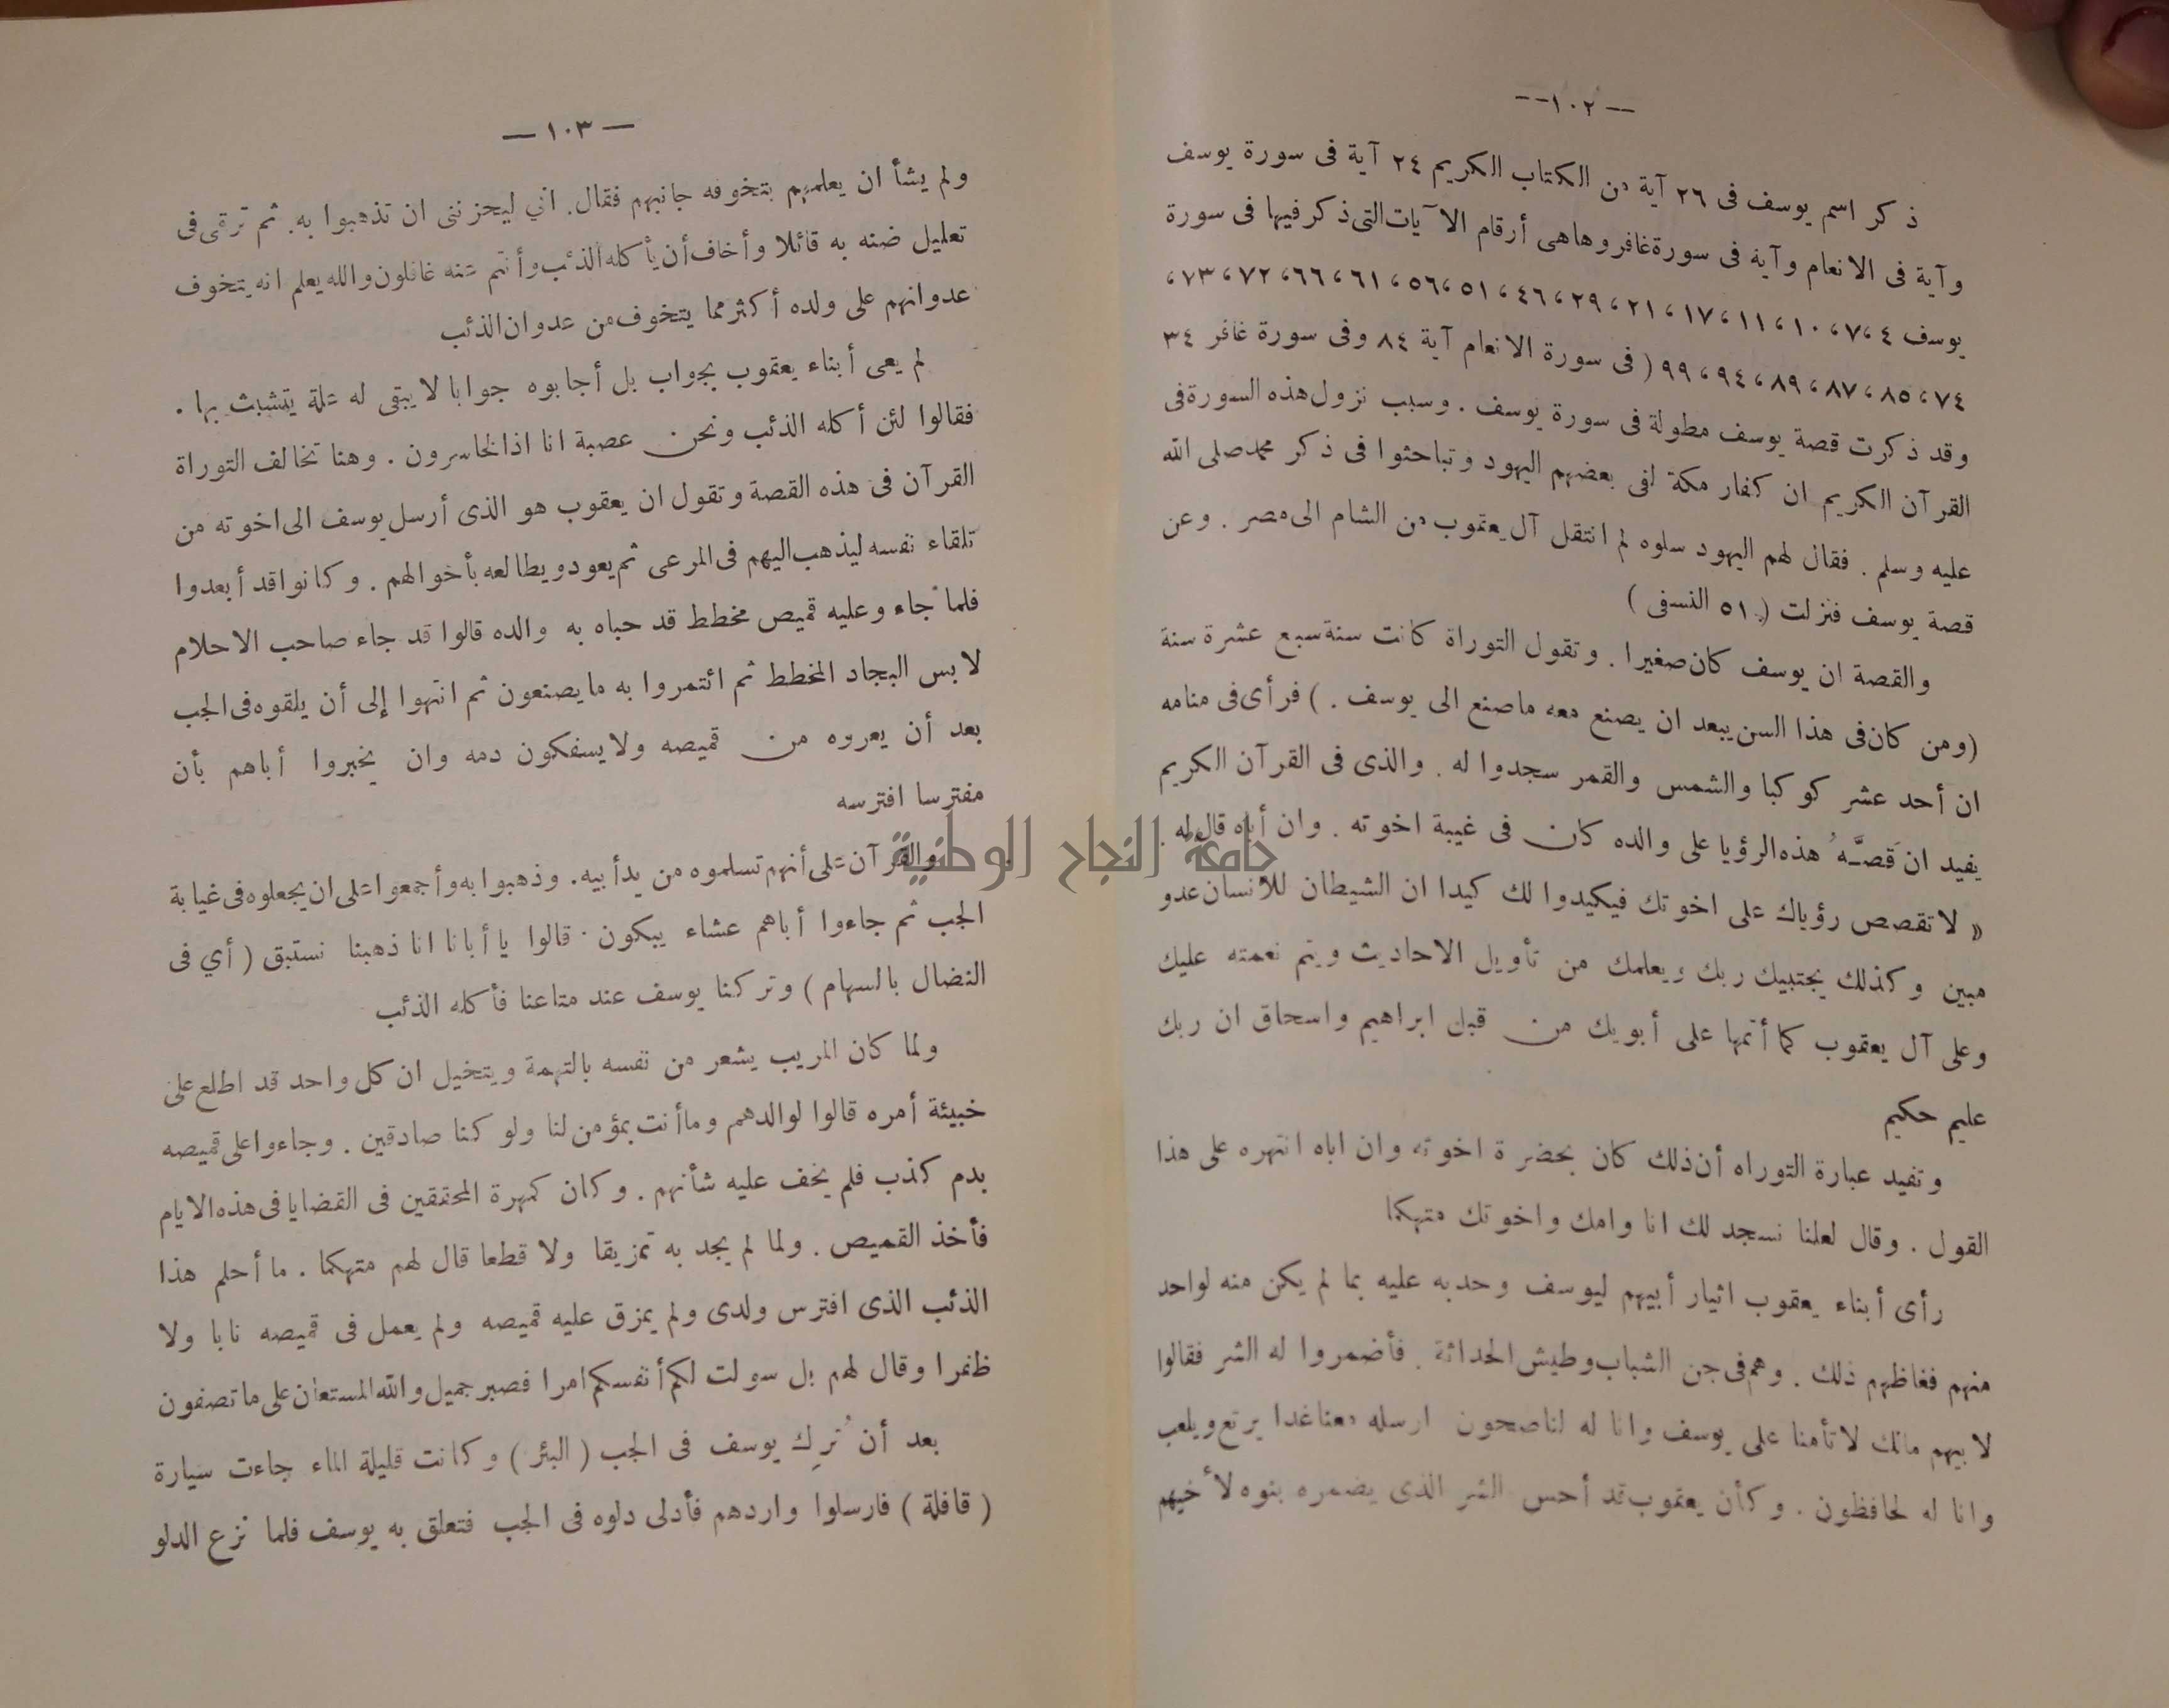 --١٠٢--
ذكر اسم يوسف فى ٢٦ آية من الكتاب الكريم ٢٤ آية فى سورة يوسف
وآية فى الانعام وآية فى سورة غافر وهاهى أرقام الآيات التى ذكر فيها فى سورة
يوسف ٤، ٧، ١٠، ١١، ١٧، ٢١، ٢٩، ٤٦، ٥١، ٥٦، ٦١، ٦٦، ٧٢، ٧٣،
٧٤، ٨٥، ٨٧، ٨٩، ٩٤، ٩٩ ( فى سورة الانعام آية ٨٤ وفى سورة غافر ٣٤
وقد ذكرت قصة يوسف مطولة فى سورة يوسف . وسبب نزول هذه السورة فى
القرآن الكريم ان كفار مكة لقى بعضهم اليهود وتباحثوا فى ذكر محمد صلى الله
عليه وسلم . فقال لهم اليهود سلوه لم انتقل آل يعقوب من الشام الى مصر . وعن
قصة يوسف فنزلت ( ٥١ النسفى )
والقصة ان يوسف كان صغيرا . وتقول التوراة كانت سنة سبع عشرة سنة
(ومن كان فى هذا السن يبعد ان يصنع معه ماصنع الى يوسف . ) فرأى فى منامه
ان أحد عشر كوكبا والشمس والقمر سجدوا له . والذى فى القرآن الكريم
يفيد ان قَصَّهُ هذه الرؤيا على والده كان فى غيبة اخوته . وان أباه قال له .
« لا تقصص رؤياك على اخوتك فيكيدوا لك كيدا ان الشيطان للأنسان عدو
مبين وكذلك يجتبيك ربك ويعلمك من تأويل الاحاديث ويتم نعمته عليك
وعلى آل يعقوب كما أتمها على أبويك من قبل ابراهيم واسحاق ان ربك
عليم حكيم
وتفيد عبارة التوراه أن ذلك كان بحضرة اخوته وان اباه انتهره على هذا
القول . وقال لعلنا نسجد لك انا وامك واخوتك متهكما
رأى أبناء يعقوب اثيار أبيهم ليوسف وحدبه عليه بما لم يكن منه لواحد
منهم فغاظهم ذلك . وهم فى جن الشباب وطيش الحداثة . فأضمروا له الشر فقالوا
لابيهم مالك لا تأمنا على يوسف وانا له لناصحون ارسله معنا غدا يرتع ويلعب
وانا له لحافظون . وكأن يعقوب قد أحس الشر الذى يضمره بنوه لأخيهم
— ١٠٣ —
ولم يشأ ان يعلمهم بتخوفه جانبهم فقال . اني ليحزننى ان تذهبوا به . ثم ترقى فى
تعليل ضنه به قائلا وأخاف أن يأكله الذئب وأنتم عنه غافلون والله يعلم انه يتخوف
عدوانهم على ولده أكثر مما يتخوف من عدوان الذئب
لم يعى أبناء يعقوب بجواب بل أجابوه جوابا لا يبقى له علة يتشبث بها .
فقالوا لئن أكله الذئب ونحن عصبة انا اذا لخاسرون . وهنا تخالف التوراة
القرآن فى هذه القصة وتقول ان يعقوب هو الذى أرسل يوسف الى اخوته من
تلقاء نفسه ليذهب اليهم فى المرعى ثم يعود ويطالعه بأخوالهم . وكانوا قد أبعدوا
فلما جاء وعليه قميص مخطط قد حباه به والده قالوا قد جاء صاحب الاحلام
لابس البجاد المخطط ثم ائتمروا به ما يصنعون ثم انتهوا إلى أن يلقوه فى الجب
بعد أن يعروه من قميصه ولا يسفكون دمه وان يخبروا أباهم بأن
مفترسا افترسه
والقرآن على أنهم تسلموه من يد أبيه . وذهبوا به وأجمعوا على ان يجعلوه فى غيابة
الجب ثم جاءوا أباهم عشاء يبكون . قالوا يا أبانا انا ذهبنا نستبق ( أي فى
النضال بالسهام ) وتركنا يوسف عند متاعنا فأكله الذئب
ولما كان المريب يشعر من نفسه بالتهمة ويتخيل ان كل واحد قد اطلع على
خبيئة أمره قالوا لوالدهم وما أنت بمؤمن لنا ولو كنا صادقين . وجاءوا على قميصه
بدم كذب فلم يخف عليه شأنهم . وكان كمهرة المحققين فى القضايا فى هذه الايام
فأخذ القميص . ولما لم يجد به تمزيقا ولا قطعا قال لهم متهكما . ما أحلم هذا
الذئب الذى افترس ولدى ولم يمزق عليه قميصه ولم يعمل فى قميصه نابا ولا
ظفرا وقال لهم بل سولت لكم أنفسكم امرا فصبر جميل والله المستعان على ما تصفون
بعد أن تُرِك يوسف فى الجب ( البئر ) وكانت قليلة الماء جاءت سيارة
( قافلة ) فارسلوا واردهم فأدلى دلوه فى الجب فتعلق به يوسف فلما نزع الدلو
جامعة النجاح الوطنية